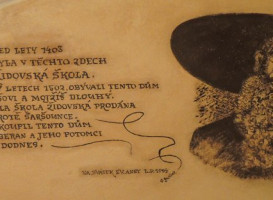 ED LETY 1403
YLA V TĚCHTO ZDECH
ŽIDOVSKÁ ŠKOLA.
LETECH 1502. OBÝVALI TENTO DŮM
A MOJŽÍŠ DLOUHÝ.
LA ŠKOLA ŽIDOVSKÁ PRODÁNA
ROTĚ ŠARŠOUNCE.
KOUPIL TENTO DŮM
BERAN A JEHO POTOMCI
DODNES.